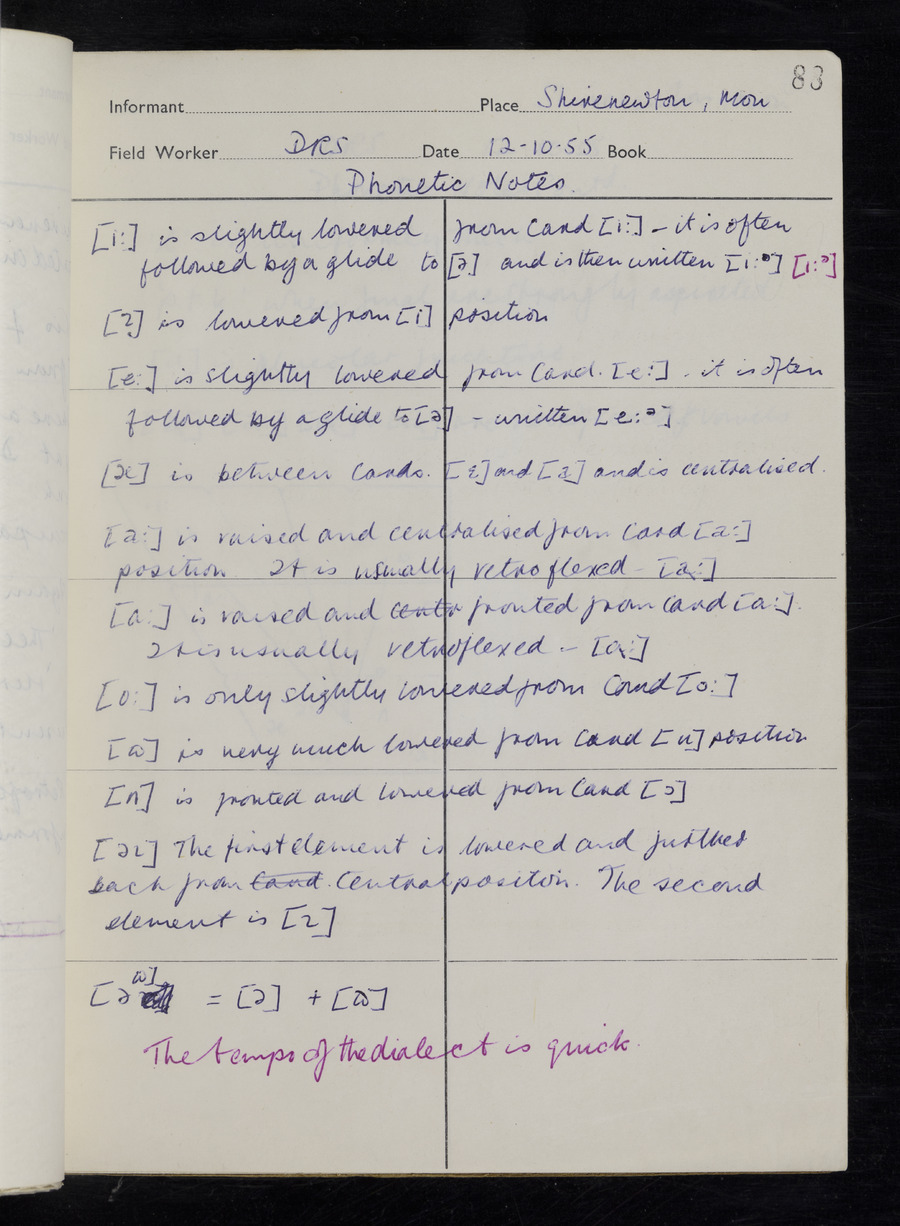 83
Informant Place Shirenewton, Mon
Field Worker DRS Date 12-10-55 Book
Phonetic Notes.
[i:] is slightly lowered from Card [i:] – it is often
followed by a glide to [ə] and is then written [i:ᵊ] [i:ᵊ]
[ɪ] is lowered from [i] position
[e:] is slightly lowered from Card. [e:] - it is often
followed by a glide to [ə] – written [e:ᵊ]
[æ] is between Cards. [ɛ] and [a] and is centralised.
[a:] is raised and centralised from Card [a:]
position It is usually retroflexed – [a:]
[ɑ:] is raised and centr fronted from Card [ɑ:].
It is usually retroflexed – [ɑ:]
[o:] is only slightly lowered from Card [o:]
[ɷ] is very much lowered from Card [u] position
[ʌ] is fronted and lowered from Card [ɔ]
[əɪ] The first element is lowered and further
back from Card. Central position. The second
element is [ɪ]
[əɷ] = [ə] + [ɷ]
The tempo of the dialect is quick.